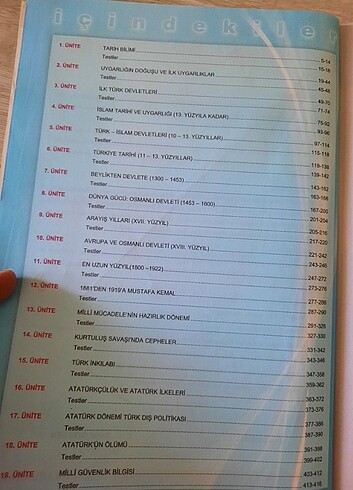 içindekiler
1. ÜNİTE TARİH BİLİMİ 5-14
Testler 15-18
2. ÜNİTE UYGARLIĞIN DOĞUŞU VE İLK UYGARLIKLAR 19-44
Testler 45-48
3. ÜNİTE İLK TÜRK DEVLETLERİ 49-70
Testler 71-74
4. ÜNİTE İSLAM TARİHİ VE UYGARLIĞI (13. YÜZYILA KADAR) 75-92
Testler 93-96
5. ÜNİTE TÜRK – İSLAM DEVLETLERİ (10 – 13. YÜZYILLAR) 97-114
Testler 115-118
6. ÜNİTE TÜRKİYE TARİHİ (11 – 13. YÜZYILLAR) 119-138
Testler 139-142
7. ÜNİTE BEYLİKTEN DEVLETE (1300 – 1453) 143-162
Testler 163-166
8. ÜNİTE DÜNYA GÜCÜ: OSMANLI DEVLETİ (1453 – 1600) 167-200
Testler 201-204
9. ÜNİTE ARAYIŞ YILLARI (XVII. YÜZYIL) 205-216
Testler 217-220
10. ÜNİTE AVRUPA VE OSMANLI DEVLETİ (XVIII. YÜZYIL) 221-242
Testler 243-246
11. ÜNİTE EN UZUN YÜZYIL(1800 –1922) 247-272
Testler 273-276
12. ÜNİTE 1881'DEN 1919'A MUSTAFA KEMAL 277-286
Testler 287-290
13. ÜNİTE MİLLİ MÜCADELE'NİN HAZIRLIK DÖNEMİ 291-326
Testler 327-330
14. ÜNİTE KURTULUŞ SAVAŞI'NDA CEPHELER 331-342
Testler 343-346
15. ÜNİTE TÜRK İNKILABI 347-358
Testler 359-362
16. ÜNİTE ATATÜRKÇÜLÜK VE ATATÜRK İLKELERİ 363-372
Testler 373-376
17. ÜNİTE ATATÜRK DÖNEMİ TÜRK DIŞ POLİTİKASI 377-386
Testler 387-390
18. ÜNİTE ATATÜRK'ÜN ÖLÜMÜ 391-398
Testler 399-402
19. ÜNİTE MİLLİ GÜVENLİK BİLGİSİ 403-412
Testler 413-416